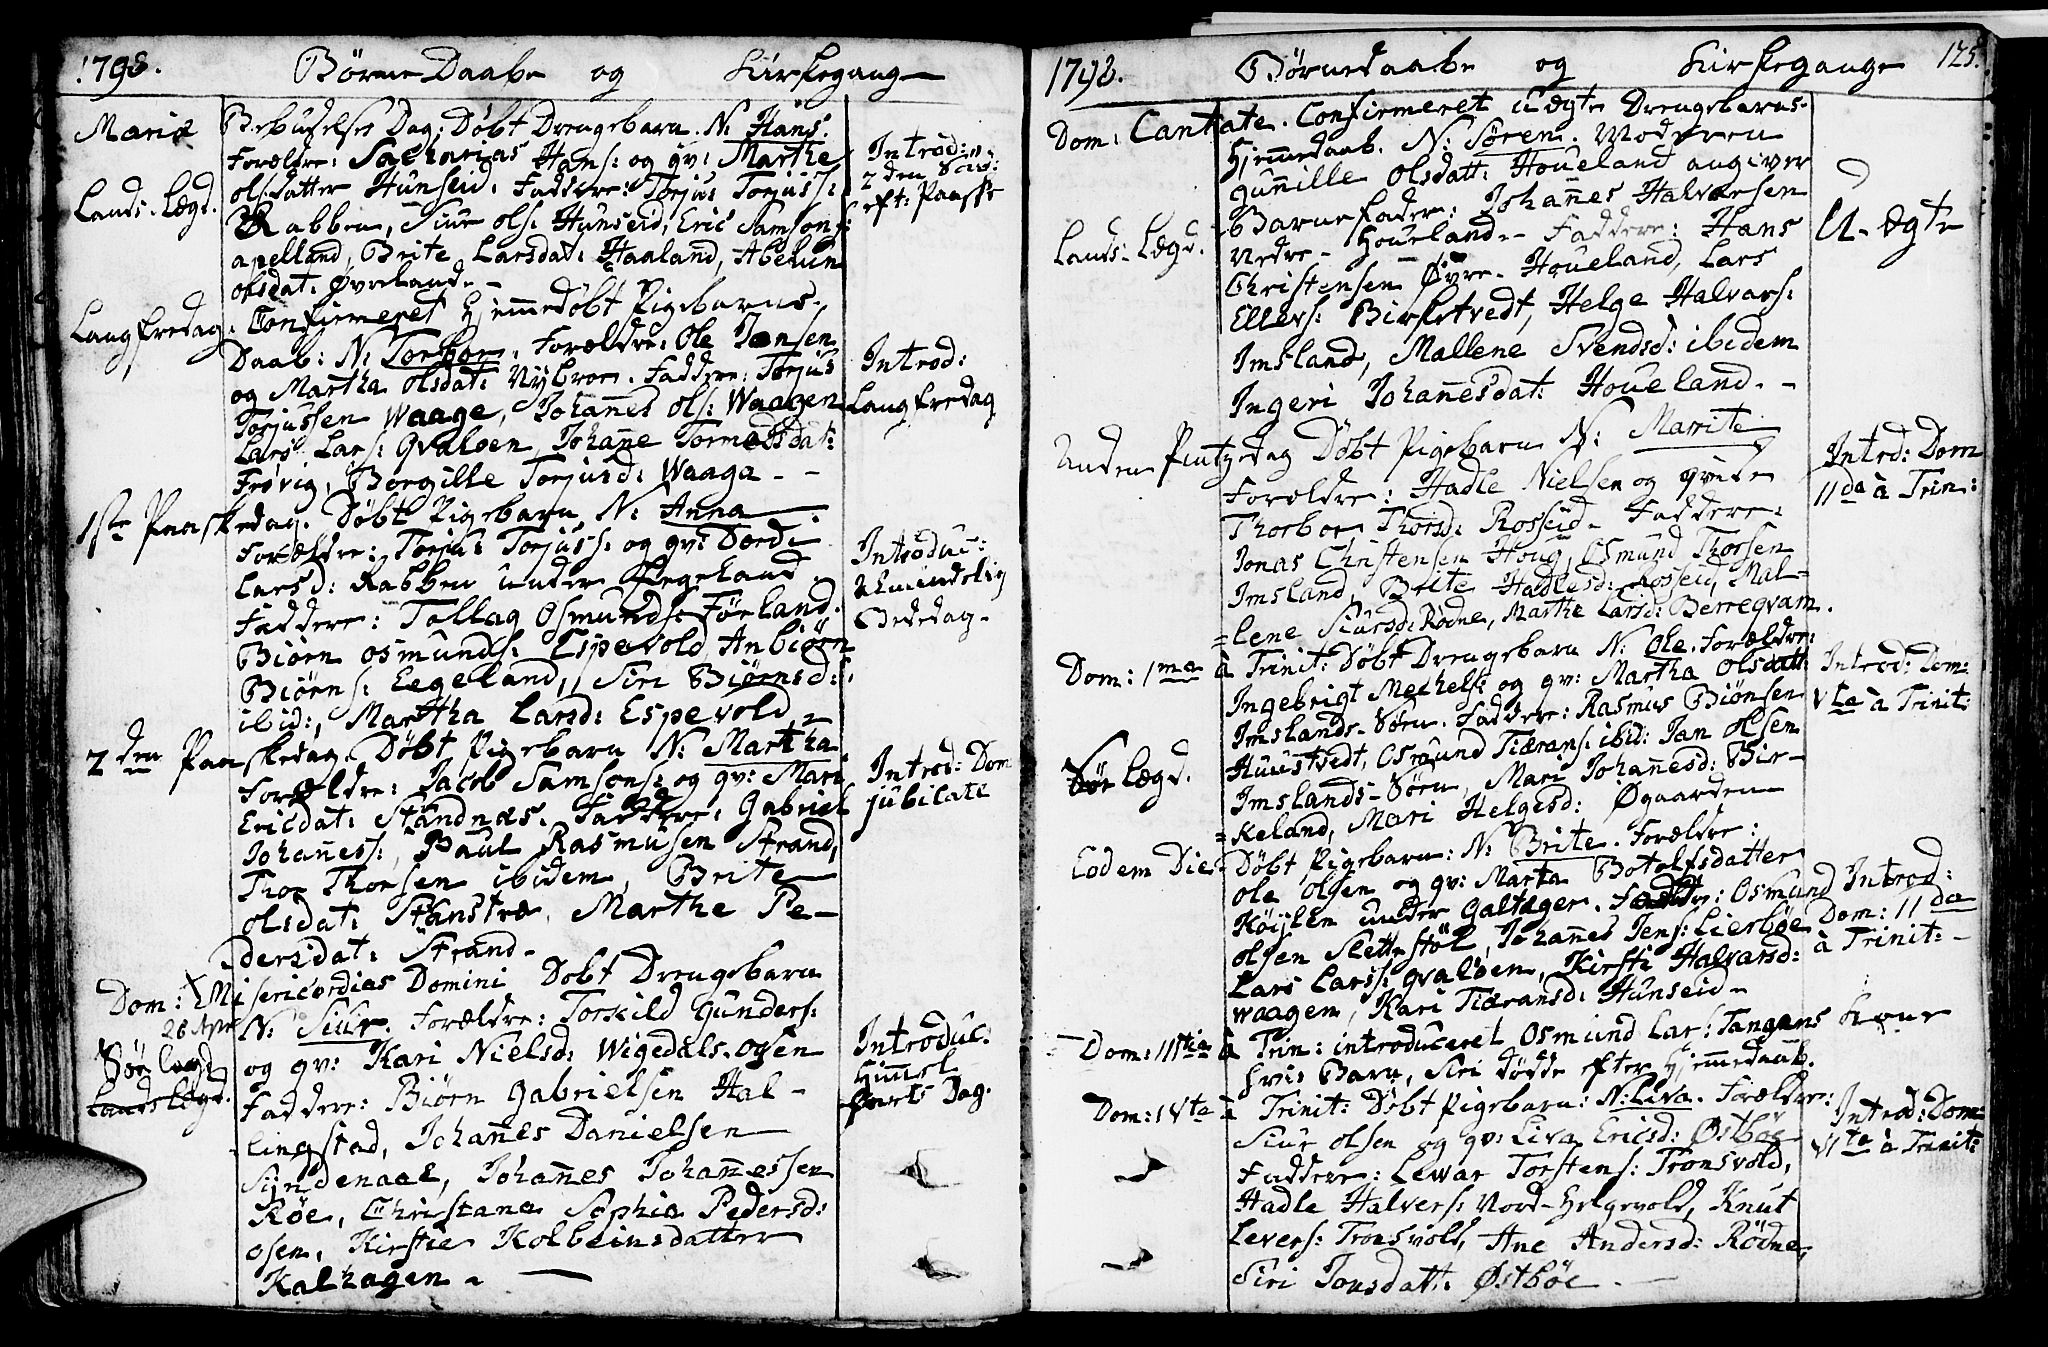 1798. Børne Daabe og Kirkegange
Mariæ Bebudelses Dag: Døbt Drengebarn. N: Hans.
Forældre: Sacharias Hans: og qv: Marthe
Lands. Lægd. Olsdatter Hunseid. Faddere: Torjus Torjuss:
Rabben, Siur Ols: Hunseid, Eric Samsons:
Apelland, Brite Larsdat: Haaland, Abelun
Olsdat: Øvreland. -
Introd:
2den Sønd:
eft: Paaske
Langfredag. Confirmeret Hjemmedøbt Pigebarns
Daab: N: Torbor. Forældre: Ole Jansen
og Martha Olsdat: Nybroe. Faddere: Torjus
Torjussen Waage, Johannes Ols: Waagen
Lars Lars: Qvaloen, Johanne Tormodsdat:
Frøvig, Borgille Torjusd: Waaga - -
Introd:
Langfredag
1ste Paaskedag. Døbt Pigebarn N: Anna
Forældre: Torjus Torjuss: og qv: Dordi
Larsd: Rabben under Egeland
Faddere: Tollag Osmunds: Førland.
Biørn Osmunds: Espevold, Anbiørn
Biørns: Eegeland, Siri Biørnsd:
ibid:, Martha Larsd: Espevold, -
Introduc:
Almindelig
Bededag.
2den Paaskedag. Døbt Pigebarn N: Martha
Forældre: Jacob Samsons: og qv: Mari
Ericdat: Standnæs. Faddere: Gabriel
Johanness:, Paul Rasmusen Strand,
Thor Thorsen ibidem, Brite
Olsdat: Stanstræ, Marthe Pe-
dersdat: Strand.
Introd: Dom
jubilate
Dom: Misericordias Domini Døbt Drengebarn
N: Siur. Forældre: Torkild Gunders:
Sør lægd
Lands lægd.
og qv: Kari Nielsd: Wigedals-Osen
Faddere: Biørn Gabrielsen Hal-
lingstad, Johannes Danielsen
Syndenaae, Johannes Johannessen
Røe, Christana Sophia Pedersd:
Osen, Kirstie Kolbeinsdatter
Kalhagen. -
Introduc:
Himmel
farts Dag.
1798. Børnedaabe og Kirkegange 125.
Dom: Cantate. Confirmeret Uægte Drengebarns
Hjemmedaab. N: Søren. Moderen
Gunnille Olsdatt: Houeland angiver
Barnefader: Johannes Halvorsen
Lands. Lægd. Nedre- Houeland. Faddere: Hans
Christensen Øvre- Houeland, Lars
Ellevs: Birkstvedt, Helge Halvars:
Imsland, Mallene Svendsd: ibidem
Ingeri Johannesdat: Houeland. -
U-ægte
Anden Pintzedag Døbt Pigebarn N: Marrite
Forældre: Hadle Nielsen og qvinde
Thorbor Thorsd: Rosseid. Faddere:
Jonas Christensen Houg, Osmund Thorsen
Imsland, Brite Hadlesd: Rosseid, Mal-
=lene Siursd: Rødne, Marthe Larsd: Berreqvam.
Introd: Dom
11da à Trin:
Dom: 1ma à Trinit: Døbt Drengebarn N: Ole. Forældre:
Ingebrigt Mechels: og qv: Martha Olsdatt:
Imslands-Søen. Faddere: Rasmus Biønsen
Huustvedt, Osmund Tiærans: ibid: Jan Olsen
Sør lægd. Imslands-Søen, Mari Johannesd: Bir-
=keland, Mari Helgesd: Øgaarden
Introd: Dom:
Vta à Trinit:
Eodem Die Døbt Pigebarn: N: Brite. Forældre:
Ole Olsen og qv: Marta Botolfsdatter
Køylen under Galtager. Faddere: Osmund
Olsen Slettestøl, Johannes Jens: Lierbøe
Lars Larss: Qvaloen, Kirsti Halvarsd:
Waagen, Kari Tiæransd: Hunseid -
Introd:
Dom: 11da
à Trinit:
Dom: 111tia à Trin: introduceret Osmund Lars: Tangens Kone
hvis Barn, Siri døde efter Hjemmedaab.
Dom: 1Vta à Trinit: Døbt Pigebarn: N: Liva. Forældre:
Siur Olsen og qv: Liva Ericsd: Østbøe
Faddere: Lewar Torstens: Tronsvold,
Hadle Halvers: Nord-Helgevold, Knut
Levers: Tronsvold, Ane Andersd: Rødne,
Siri Jonsdatt: Østbøe.
Introd: Dom:
V1ta à Trinit: